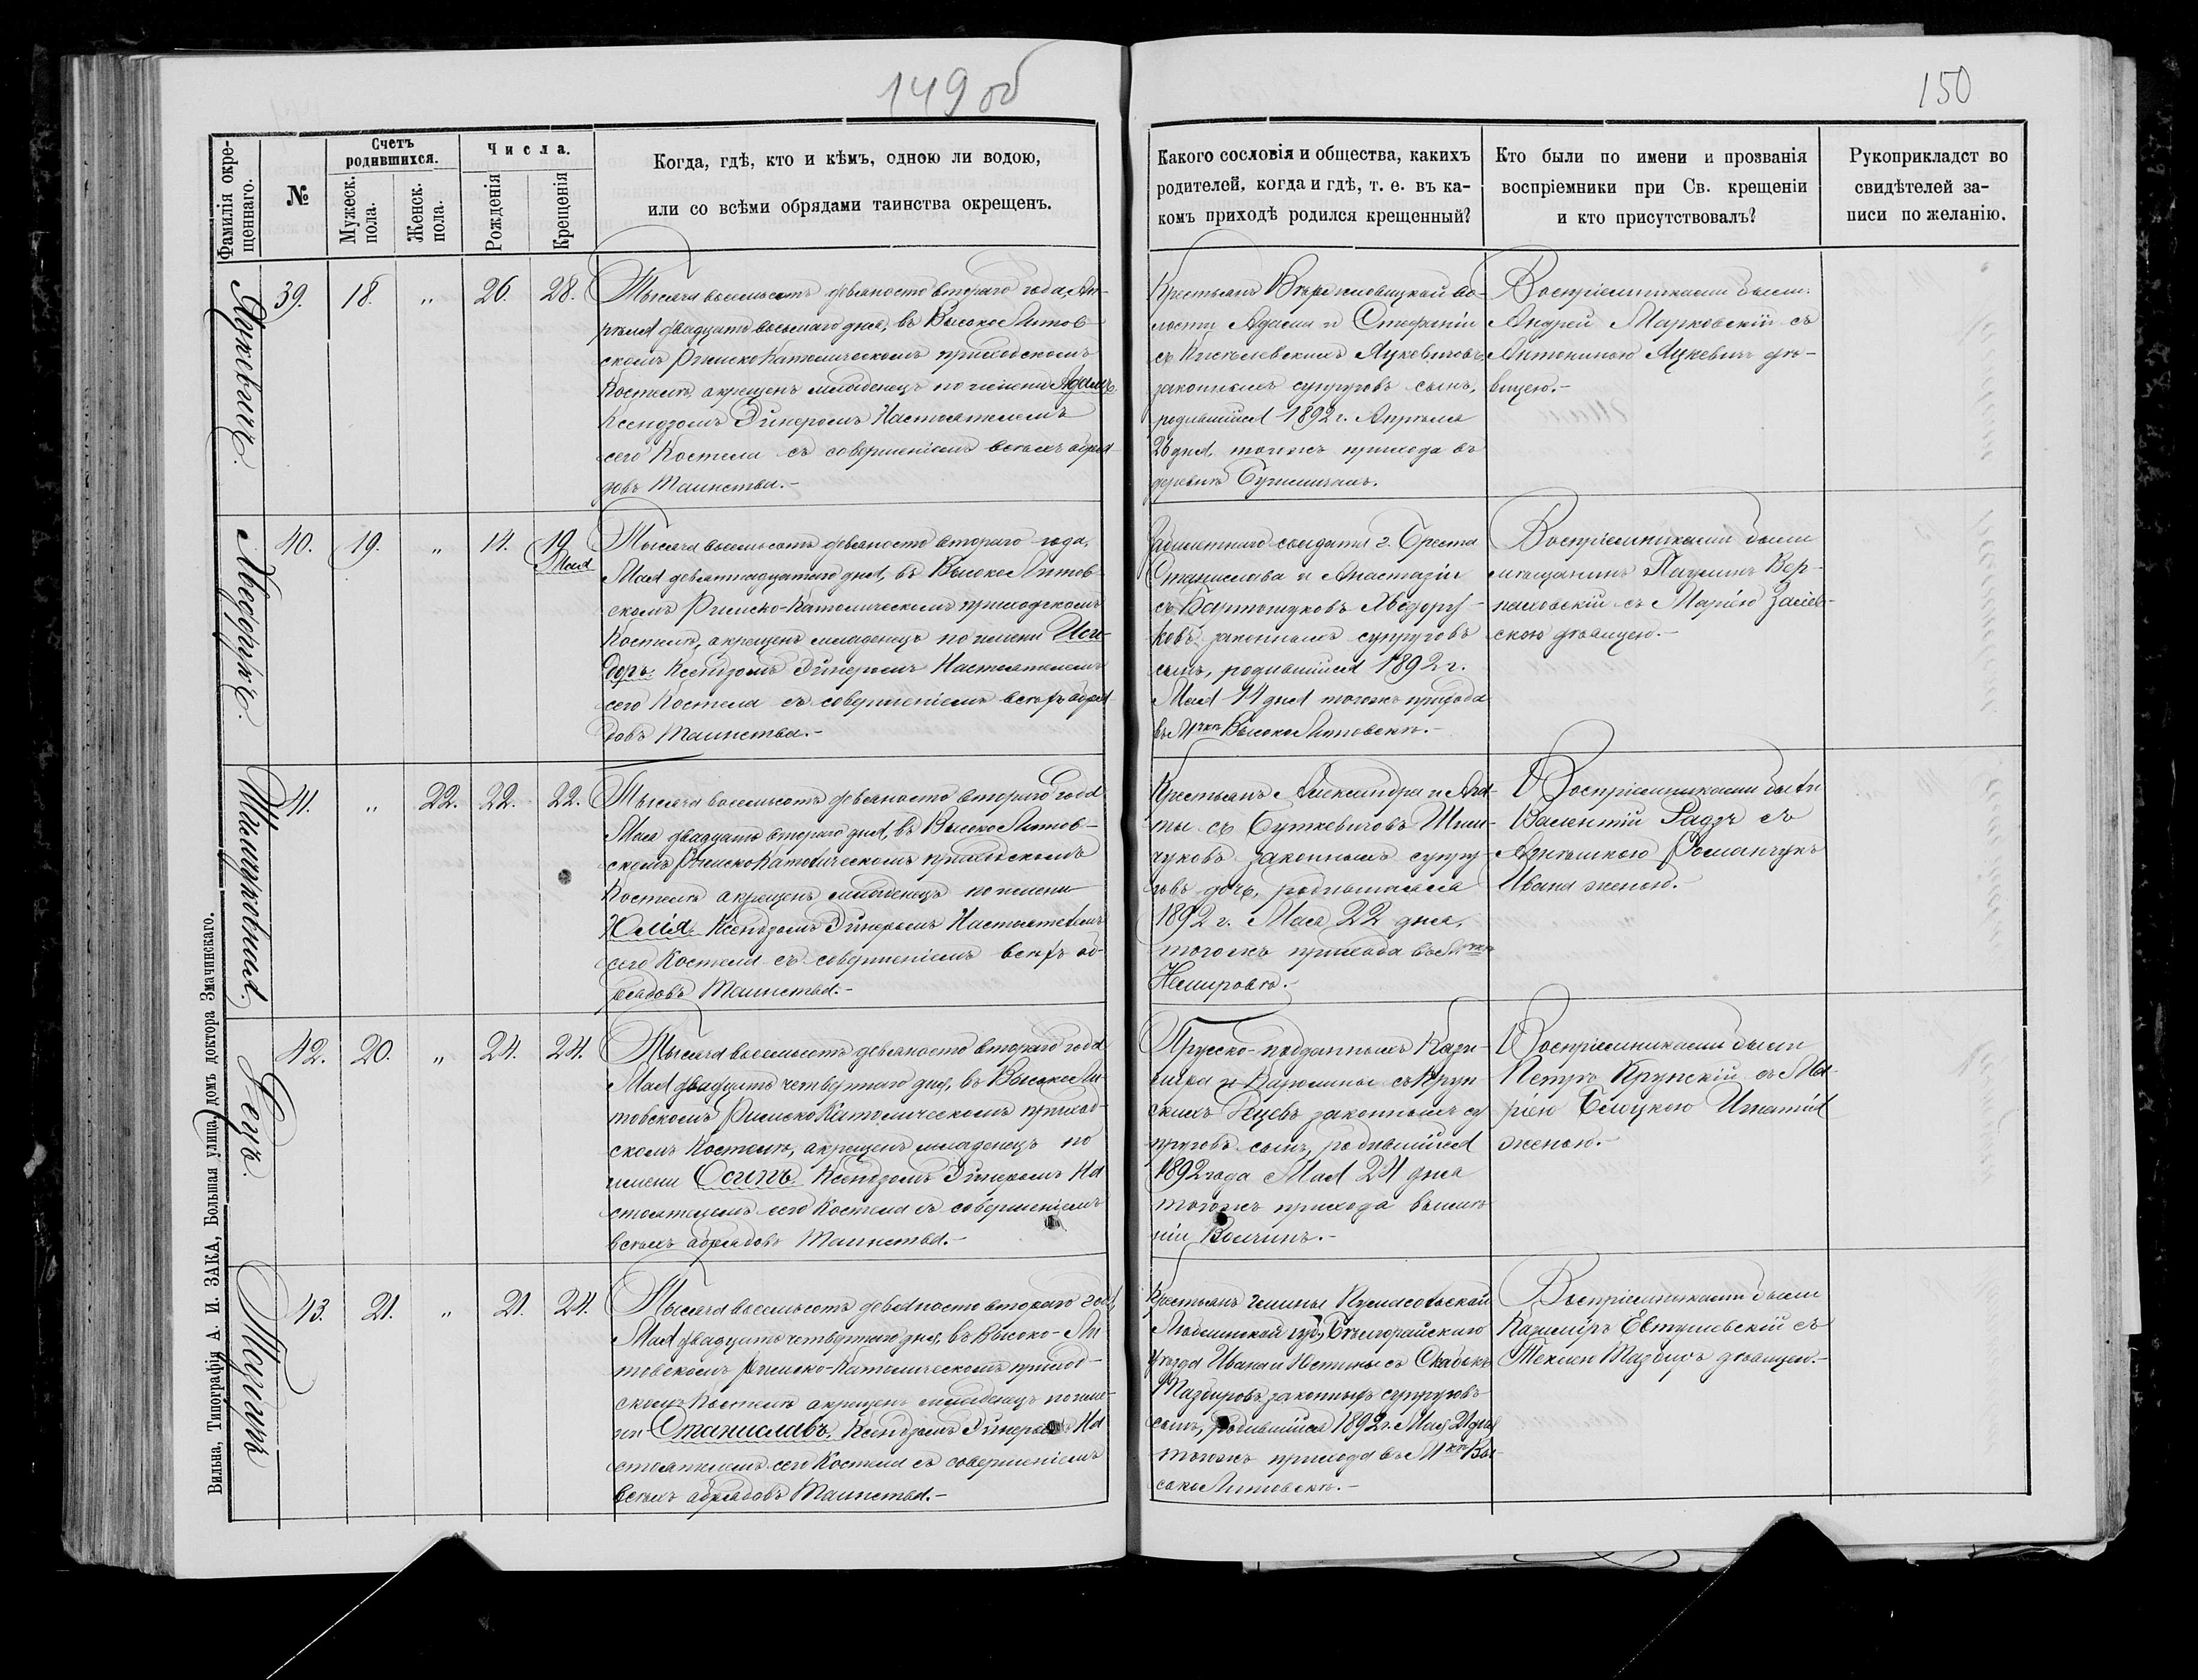 149 об
150
Фамилія окре-
щеннаго.
№
Счетъ
родившихся.
Мужеск.
пола.
Женск.
пола.
Числа.
Рожденія
Крещенія
Когда, гдѣ, кто и кѣмъ, одною ли водою,
или со всѣми обрядами таинства окрещенъ.
Какого сословія и общества, какихъ
родителей, когда и гдѣ, т. е. въ ка-
комъ приходѣ родился крещенный?
Кто были по имени и прозванія
воспріемники при Св. крещеніи
и кто присутствовалъ?
Рукоприкладст во
свидѣтелей за-
писи по желанію.
Яцкевичъ.
39. 18. „ 26. 28.
Тысяча восемьсотъ девяносто втораго года Ап-
рѣля двадцать восьмаго дня, въ Высоко Литов-
скомъ Римско Католическомъ приходскомъ
Костелѣ, окрещенъ младенецъ по имени Адамъ
Ксендзомъ Эйнеромъ Настоятелемъ
сего Костела съ совершеніемъ всѣхъ обря
довъ Таинства.-
Крестьянъ во-
лости Адама и Стефаніи
съ Яцкевичовъ
законныхъ супруговъ сынъ,
родившійся 1892 г. Апрѣля
26 дня тогожъ прихода въ
деревнѣ
Воспріемниками были:
Андрей Марковскій съ
Антониною Яцкевичъ дѣ-
вицею.-
Хведорукъ.
40. 19. „ 14. 19
Мая
Тысяча восемьсотъ девяносто втораго года,
Мая девятнадцатаго дня, въ Высоко Литов-
скомъ Римско-Католическомъ приходскомъ
Костелѣ, окрещенъ младенецъ по имени Иси-
доръ. Ксендзомъ Эйнеромъ Настоятелемъ
сего Костела съ совершеніемъ всѣхъ обря
довъ Таинства.-
солдата г. Бреста
Станислава и Анастазіи
съ Бартошуковъ Хведору-
ковъ законныхъ супруговъ
сынъ, родившійся 1892 г.
Мая 14 дня тогожъ прихода
въ Мчкѣ Высоко Литовскѣ.-
Воспріемниками были
мѣщанинъ Паулинъ Вер-
паховскій съ Маріею
скою дѣвицею.-
41. „ 22. 22. 22.
Тысяча восемьсотъ девяносто втораго года
Мая двадцать втораго дня, въ Высоко Литов-
скомъ Римско Католическомъ приходскомъ
Костелѣ окрещенъ младенецъ по имени
Юлія. Ксендзомъ Эйнеромъ Настоятелемъ
сего Костела съ совершеніемъ всѣхъ об-
рядовъ Таинства.-
Крестьянъ Александра и Ага-
ты съ Буткевичовъ Шим-
чуковъ законныхъ супру-
говъ дочь, родившаяся
1892 г. Мая 22 дня,
тогожъ прихода въ Мчкѣ
Немировѣ.-
Воспріемниками были
Валентій Радзъ съ
Агнѣшкою Романчукъ
Ивана женою.-
Рецъ.
42. 20. „ 24. 24.
Тысяча восемьсотъ девяносто втораго года
Мая двадцать четвертаго дня, въ Высоко Ли-
товскомъ Римско Католическомъ приход-
скомъ Костелѣ, окрещенъ младенецъ по
имени Осипъ. Ксендзомъ Эйнеромъ На
стоятелемъ сего Костела съ совершеніемъ
всѣхъ обрядовъ Таинства.-
Прусско-подданныхъ Кази-
мира и Каролины съ Круп
скихъ Рецевъ законныхъ су
пруговъ сынъ, родившійся
1892 года Мая 24 дня
тогожъ прихода въ имѣ
ніи Волчинъ.-
Воспріемниками были
Петръ Крупскій съ Ма-
ріею Бялоцкою Игнатія
женою.-
Мазуръ
43. 21. „ 21. 24.
Тысяча восемьсотъ девяносто втораго года,
Мая двадцать четвертаго дня, въ Высоко-Ли
товскомъ Римско-Католическомъ приход-
скомъ Костелѣ окрещенъ младенецъ по име-
ни Станиславъ. Ксендзомъ Эйнеромъ На
стоятелемъ сего Костела съ совершеніемъ
всѣхъ обрядовъ Таинства.-
Крестьянъ гмины
Люблинской губ., Бѣлгорайскаго
уѣзда Ивана и Юстины съ
законныхъ супруговъ
сынъ, родившійся 1892 г. Мая 21 дня
тогожъ прихода въ Мчкѣ Вы-
соко Литовскѣ.-
Воспріемниками были
Казиміръ Евтушевскій съ
Теклею дѣвицею.-
Вильна, Типографія А. И. ЗАКА, Большая улица, домъ доктора Змачинскаго.